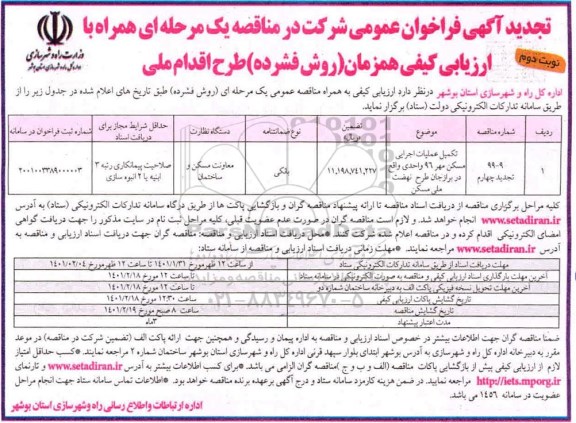 تجدید آگهی فراخوان عمومی شرکت در مناقصه یک مرحله ای همراه با
ارزیابی کیفی همزمان (روش فشرده) طرح اقدام ملی
نوبت دوم
وزارت راه و شهرسازی
اداره کل راه و شهرسازی استان بوشهر
اداره کل راه و شهرسازی استان بوشهر درنظر دارد ارزیابی کیفی به همراه مناقصه عمومی یک مرحله ای (روش فشرده) طبق تاریخ های اعلام شده در جدول زیر را از
طریق سامانه تدارکات الکترونیکی دولت (ستاد) برگزار نماید.
ردیف شماره مناقصه موضوع تضمین نوع ضمانتنامه دستگاه نظارت حداقل شرایط مجاز برای دریافت اسناد شماره ثبت فراخوان در سامانه
۱ ۹۹-۹ تجدید چهارم تکمیل عملیات اجرایی مسکن مهر ۹۶ واحدی واقع در برازجان طرح نهضت ملی مسکن ۱۱,۱۹۸,۷۴۱,۲۲۷ بانکی معاونت مسکن و ساختمان صلاحیت پیمانکاری رتبه ۳ ابنیه یا ۲ انبوه سازی ۲۰۰۱۰۰۳۳۸۹۰۰۰۰۰۳
کلیه مراحل برگزاری مناقصه از دریافت اسناد مناقصه تا ارائه پیشنهاد مناقصه گران و بازگشایی پاکت ها از طریق درگاه سامانه تدارکات الکترونیکی (ستاد) به آدرس
www.setadiran.ir انجام خواهد شد. و لازم است مناقصه گران در صورت عدم عضویت قبلی، کلیه مراحل ثبت نام در سایت مذکور را جهت دریافت گواهی
امضای الکترونیکی اقدام کرده و در مناقصه اعلام شده شرکت نمایند. مناقصه گران محترم جهت دریافت اسناد ارزیابی و مناقصه به
آدرس www.setadiran.ir مراجعه نمایند. *مهلت زمانی دریافت اسناد ارزیابی و مناقصه از سامانه ستاد:
مهلت دریافت اسناد از طریق سامانه تدارکات الکترونیکی ستاد از ساعت ۱۲ ظهر مورخ ۱۴۰۱/۱/۳۱ تا ساعت ۱۲ ظهر مورخ ۱۴۰۱/۰۲/۰۴
آخرین مهلت بارگذاری اسناد ارزیابی کیفی و مناقصه به صورت الکترونیکی در سامانه ستاد تا ساعت ۱۲ مورخ ۱۴۰۱/۲/۱۸
آخرین مهلت تحویل نسخه فیزیکی پاکت الف به دبیرخانه ساختمان شماره دو تا ساعت ۱۲ مورخ ۱۴۰۱/۲/۱۸
تاریخ گشایش پاکات ارزیابی کیفی ساعت ۱۲:۳۰ مورخ ۱۴۰۱/۲/۱۸
تاریخ گشایش مناقصه ساعت ۸ صبح مورخ ۱۴۰۱/۲/۱۹
مدت اعتبار پیشنهاد ۳ماه
۰۲۱-۸۸۳۴۹۶۷۰-۵
ضمنا مناقصه گران جهت اطلاعات بیشتر در خصوص اسناد ارزیابی و مناقصه به اداره پیمان و رسیدگی و همچنین جهت ارائه پاکت الف (تضمین شرکت در مناقصه) در موعد
مقرر به دبیرخانه اداره کل راه و شهرسازی به آدرس بوشهر ابتدای بلوار سپهد قرنی اداره کل راه و شهرسازی استان بوشهر ساختمان شماره ۲ مراجعه نمایند. *کسب حداقل امتیاز
لازم از ارزیابی کیفی پیش از بازگشایی پاکات مناقصه (الف و ب و ج) مناقصه گران الزامی می باشد. *برای کسب اطلاعات بیشتر به آدرس www.setadiran.ir و تارنمای
http://iets.mporg.ir مراجعه نمایید. در ضمن هزینه کارمزد سامانه ستاد و درج آگهی برعهده برنده مناقصه خواهد بود. *اطلاعات تماس سامانه ستاد جهت انجام مراحل
عضویت در سامانه ۱۴۵۶ می باشد.
اداره ارتباطات و اطلاع رسانی راه و شهرسازی استان بوشهر